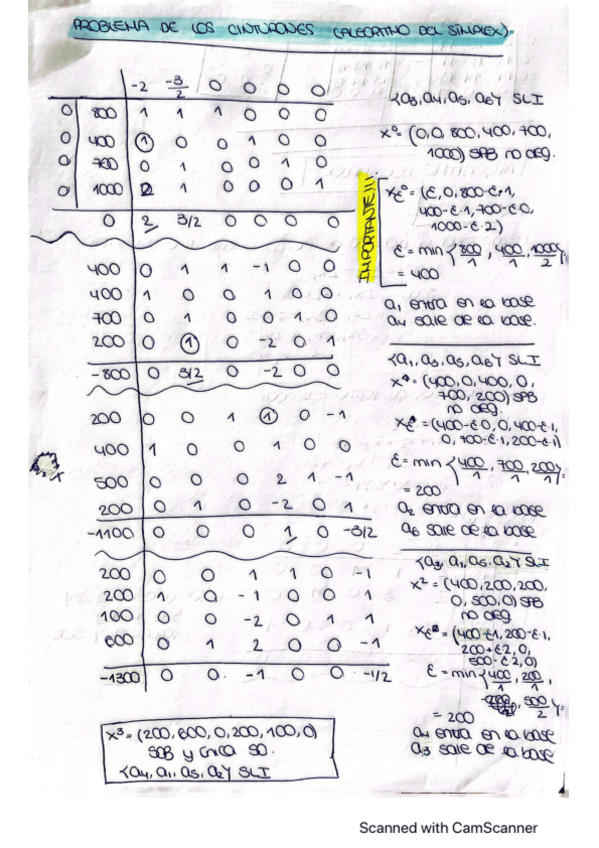 PROBLEMA DE LOS CINTURONES (ALGORITMO DEL SÍMPLEX).
-2 -3/2 0 0 0 0
0 800 1 1 1 0 0 0
0 400 1 0 0 1 0 0
0 700 0 1 0 0 1 0
0 1000 2 1 0 0 0 1
0 2 3/2 0 0 0 0
400 0 1 1 -1 0 0
400 1 0 0 1 0 0
700 0 1 0 0 1 0
200 0 1 0 -2 0 1
-800 0 3/2 0 -2 0 0
200 0 0 1 1 0 -1
400 1 0 0 1 0 0
500 0 0 0 2 1 -1
200 0 1 0 -2 0 1
-1100 0 0 0 1 0 -3/2
200 0 0 1 1 0 -1
200 1 0 -1 0 0 1
100 0 0 -2 0 1 1
600 0 1 2 0 0 -1
-1300 0 0. -1 0 0 -1/2
x³ = (200, 600, 0, 200, 100, 0)
SOB y única SO.
{a4, a1, a5, a2} SLI
{a3, a4, a5, a6} SLI
x⁰ = (0, 0, 800, 400, 700,
1000) SPB no deg.
IMPORTANTE!!!
xε⁰ = (ε, 0, 800-ε·1,
400-ε·1, 700-ε·0,
1000-ε·2)
ε = min {800/1, 400/1, 1000/2} =
= 400
a1 entra en la base
a4 sale de la base.
{a1, a3, a5, a6} SLI
x¹ = (400, 0, 400, 0,
700, 200) SPB
no deg.
xε¹ = (400-ε·0, 0, 400-ε·1,
0, 700-ε·1, 200-ε·1)
ε = min {400/1, 700/1, 200/1} =
= 200
a2 entra en la base
a6 sale de la base
{a3, a1, a5, a2} SLI
x² = (400, 200, 200,
0, 500, 0) SPB
no deg.
xε² = (400-ε·1, 200-ε·1,
200+ε·2, 0,
500-ε·2, 0)
ε = min {400/1, 200/1,
500/2} =
= 200
a4 entra en la base
a3 sale de la base
Scanned with CamScanner